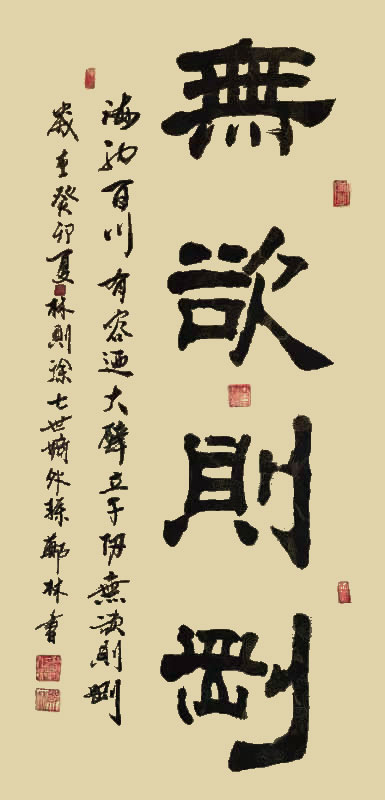 無欲則剛
海納百川有容迺大壁立千仞無欲則剛
歲在癸卯夏林則徐七世嫡外孫鄭林書